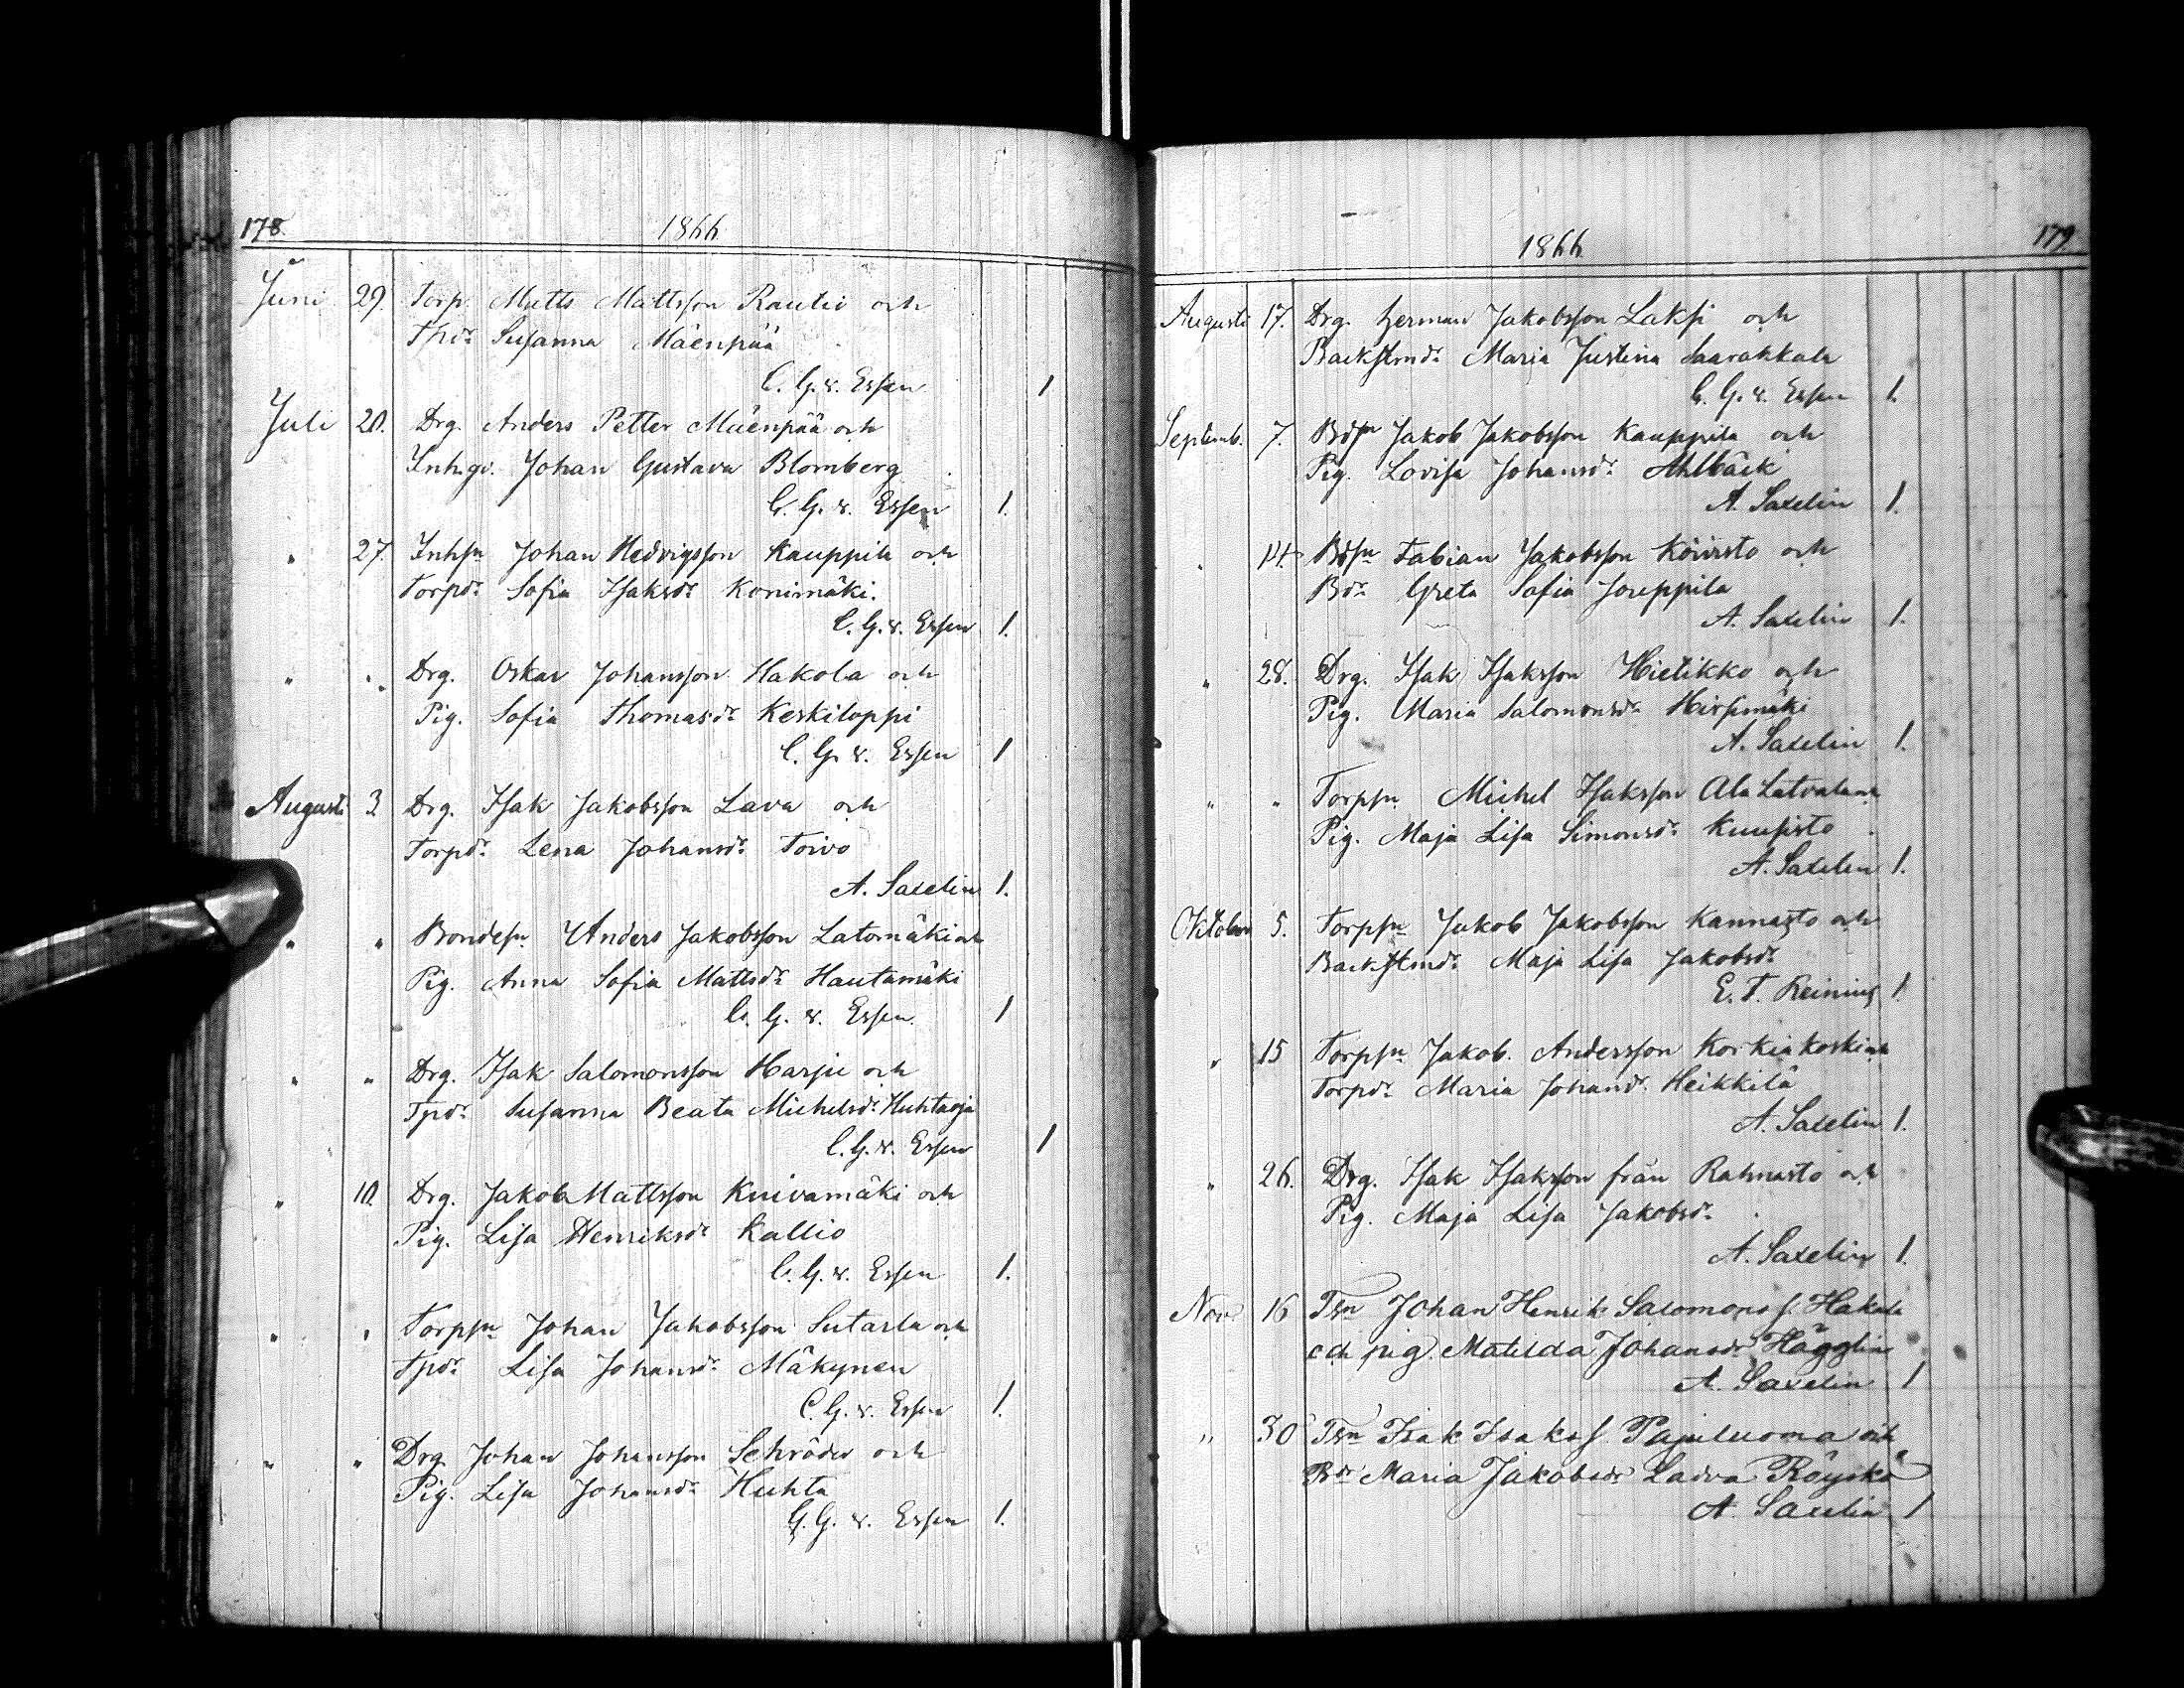 178.
1866
Juni 29. Torp. Matts Mattsson Rautio och
Tpdr Susanna Mäenpää
C. G. v. Essen 1
Juli 20. Drg. Anders Petter Mäenpää och
Inhgv. Johan Gustava Blomberg
C. G. v. Essen 1.
" 27. Inhsn Johan Hedvigsson Kauppila och
Torpdr Sofia Isaksdr Konimäki.
C. G. v. Essen 1.
" " Drg. Oskar Johansson Hakola och
Pig. Sofia Thomasdr Keskiloppi
C. G. v. Essen 1
Augusti 3. Drg. Isak Jakobsson Lava och
Torpdr Lena Johansdr Toivo
A. Saxelin 1.
" " Bondesn Anders Jakobsson Latomäki och
Pig. Anna Sofia Mattsdr Hautamäki
C. G. v. Essen. 1
" " Drg. Isak Salomonsson Harju och
Tpdr Susanna Beata Michelsdr Huhtaoja
C. G. v. Essen 1
" 10. Drg. Jakob Mattsson Knivamäki och
Pig. Lisa Henriksdr Kallio
C. G. v. Essen 1.
" " Torpsn Johan Jakobsson Sutarla och
Tpdr Lisa Johansdr Mäkynen
C. G. v. Essen 1.
" " Drg. Johan Johansson Schröder och
Pig. Lisa Johansdr Huhta
C. G. v. Essen 1.
179
1866
Augusti 17. Drg. Herman Jakobsson Laksi och
Backstmdr Maria Justina Saarakkala
C. G. v. Essen 1.
Septemb. 7. Bdsn Jakob Jakobsson Kauppila och
Pig. Lovisa Johansdr Ahlbäck
A. Saxelin 1.
" 14. Bdsn Fabian Jakobsson Köüristo och
Bdr Greta Sofia Jouppila
A. Saxelin 1.
" 28. Drg. Isak Isaksson Hietikko och
Pig. Maria Salomonsdr Hirsimäki
A. Saxelin 1.
" " Torpsn Michel Isaksson Ala Latvala och
Pig. Maja Lisa Simonsdr Kuusisto
A. Saxelin 1.
Oktober 5. Torpsn Jakob Jakobsson Kannasto och
Backstmdr Maja Lisa Jakobsdr
E. T. Reinius 1.
" 15 Torpsn Jakob Andersson Korkiakoski och
Torpdr Maria Johansdr Heikkilä
A. Saxelin 1.
" 26. Drg. Isak Isaksson från Rahnasto och
Pig. Maja Lisa Jakobsdr
A. Saxelin 1.
Nov. 16 Tsn Johan Henrik Salomons s. Hakala
och pig. Matilda Johansdr Hägglin
A. Saxelin 1
" 30 Tsn Isak Isaks s. Pajuluoma och
Bdr Maria Jakobsdr Ladva Röyskö
A. Saxelin 1